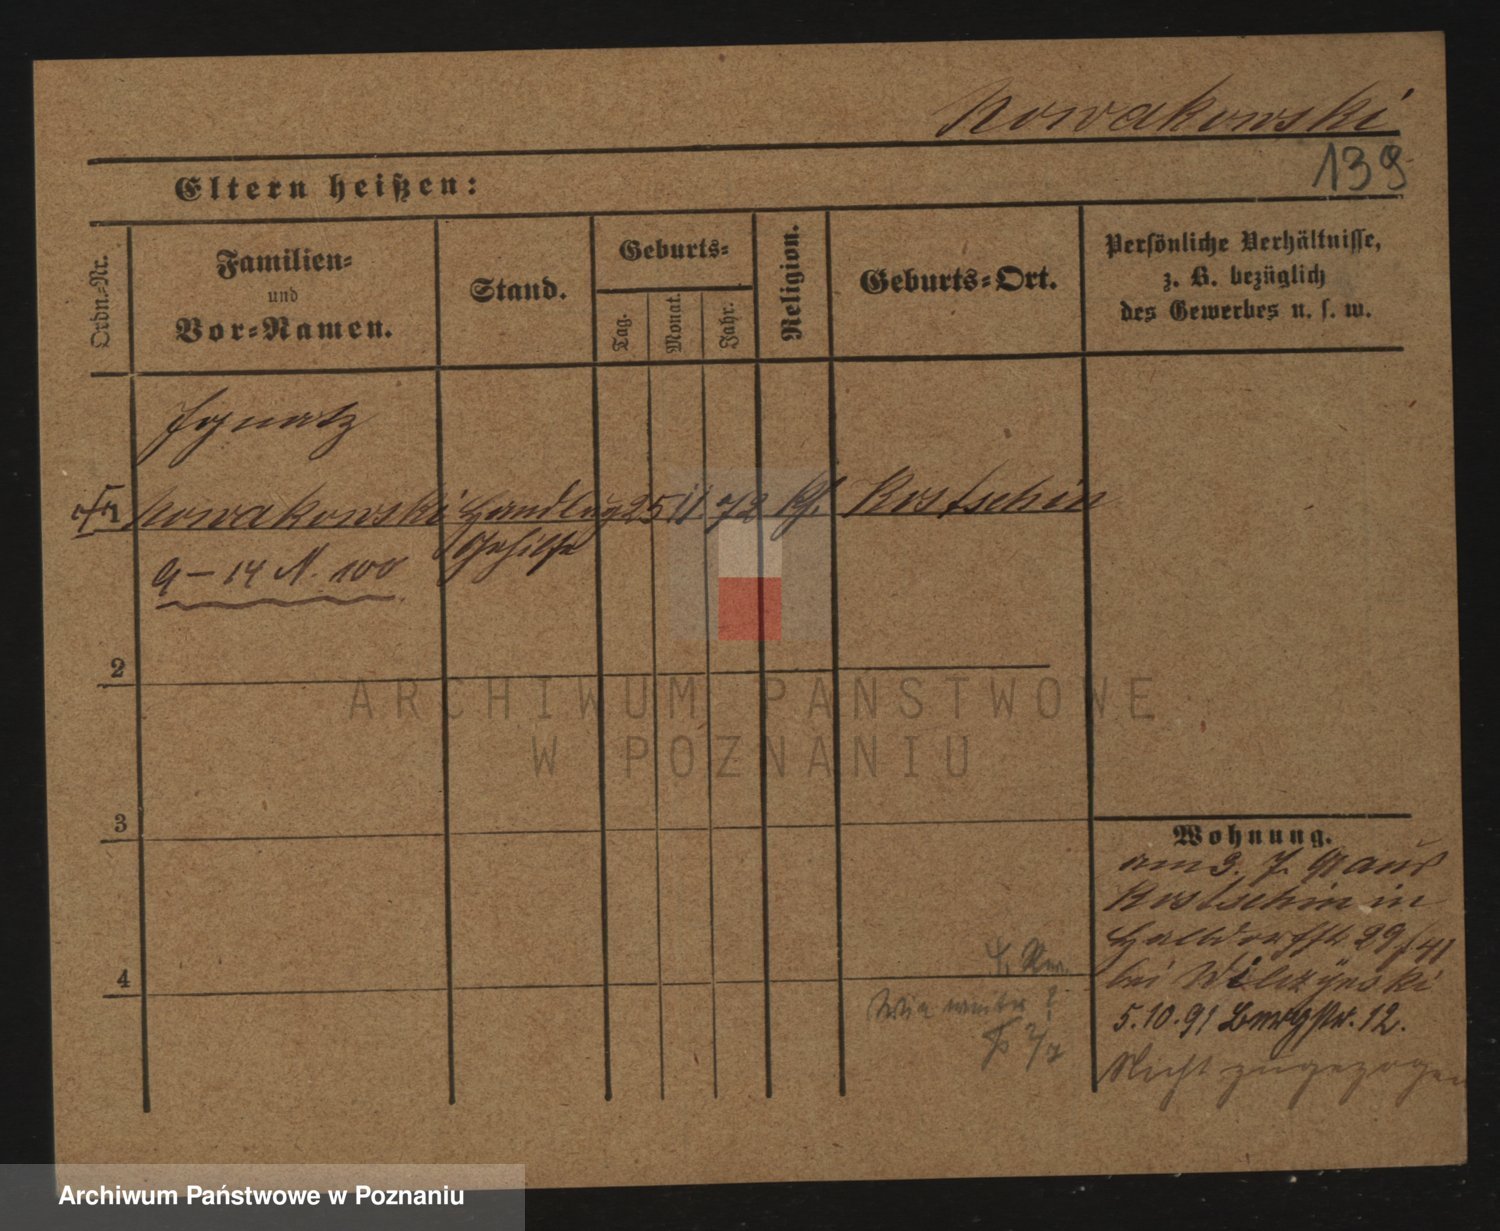 Nowakowski
139
Eltern heißen:
Ordn.=Nr.
Familien=
und
Vor=Namen.
Stand.
Geburts=
Tag.
Monat.
Jahr.
Religion.
Geburts=Ort.
Persönliche Verhältnisse,
z. B. bezüglich
des Gewerbes u. s. w.
Ignatz
Nowakowski Handlug 25 11 72 Kf. Kostschin
Gehilfe
9 – 14 N. 100
2
ARCHIWUM PAŃSTWOWE
W POZNANIU
3
Wohnung.
am 3. 7. 91 aus
Kostschin in
Halbdorfstr. 29
bei Wilczynski
4
5.10.91 Bergstr. 12.
Nicht zugezogen
Archiwum Państwowe w Poznaniu